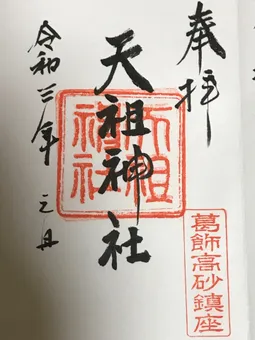 奉拝
天祖神社
天祖神社
葛飾高砂鎮座
令和三年元旦